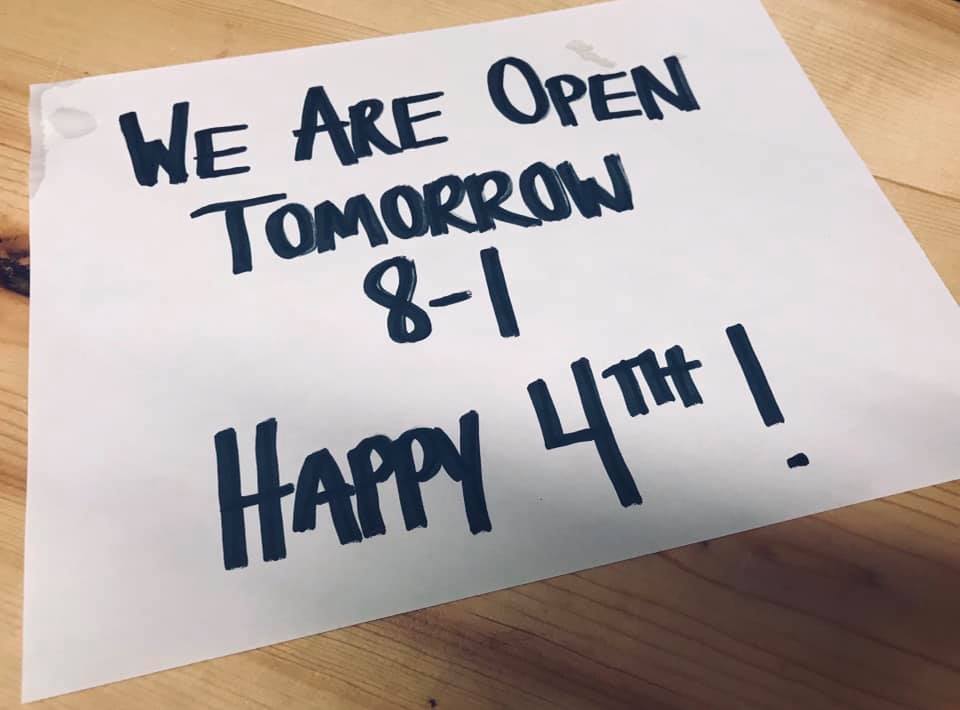 We Are Open
Tomorrow
8-1
Happy 4TH!